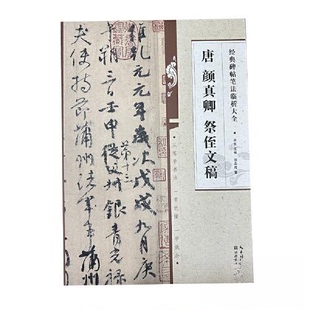 经典碑帖笔法临析大全
唐 颜真卿 祭侄文稿
維乾元元年歲次戊戌九月庚
午朔三日壬申第十三從父叔銀青光祿
夫使持節蒲州諸軍事蒲州